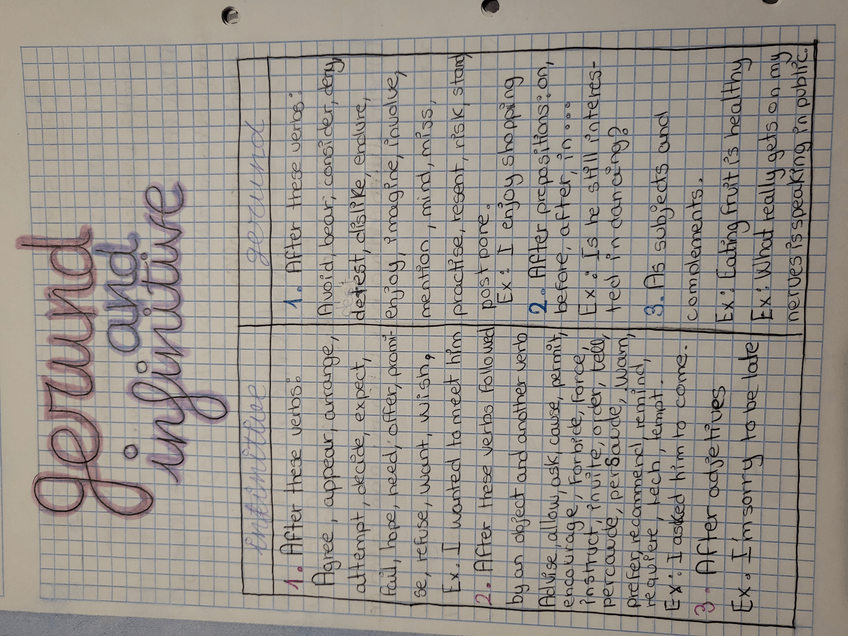 gerund
and
infinitive
infinitive
1. After these verbs:
Agree, appear, arrange,
attempt, decide, expect,
fail, hope, need, offer, promi-
se, refuse, want, wish,
Ex. I wanted to meet him
2. After these verbs followed
by an object and another verb
Advise, allow, ask, cause, permit,
encourage, forbide, force,
instruct, invite, order, tell,
percaude, persaude, warn,
prefer, recommend, remind,
requiere, tech, tempt.
Ex: I asked him to come.
3. After adjetives
Ex. I'm sorry to be late
gerund
1. After these verbs:
Avoid, bear, consider, deny,
detest, dislike, endure,
enjoy, imagine, involve,
mention, mind, miss,
practise, resent, risk, stand
postpone.
Ex: I enjoy shopping
2. After prepositions: on,
before, after, in...
Ex: Is he still interes-
ted in dancing?
3. As subjects and
complements.
Ex: Eating fruit is healthy
Ex: What really gets on my
nerves is speaking in public.